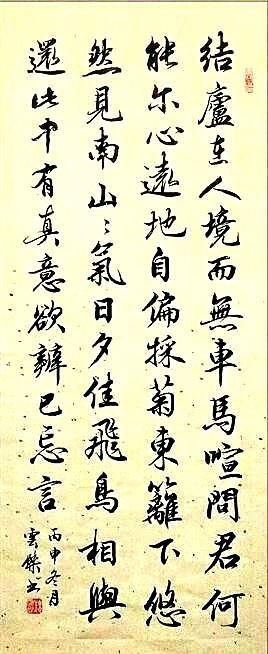 結廬在人境而無車馬喧問君何
能尔心遠地自偏採菊東籬下悠
然見南山〻氣日夕佳飛鳥相與
還此中有真意欲辨已忘言
丙申冬月
雲傑书